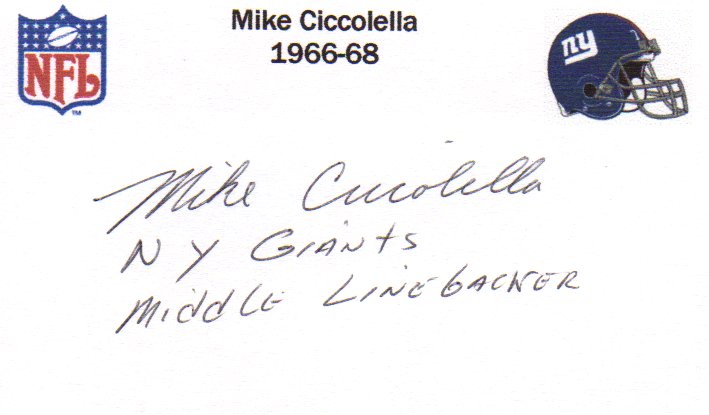 Mike Ciccolella
1966-68
NFL
TM
ny
Mike Ciccolella
NY GIANTS
MIDDLE LINEBACKER